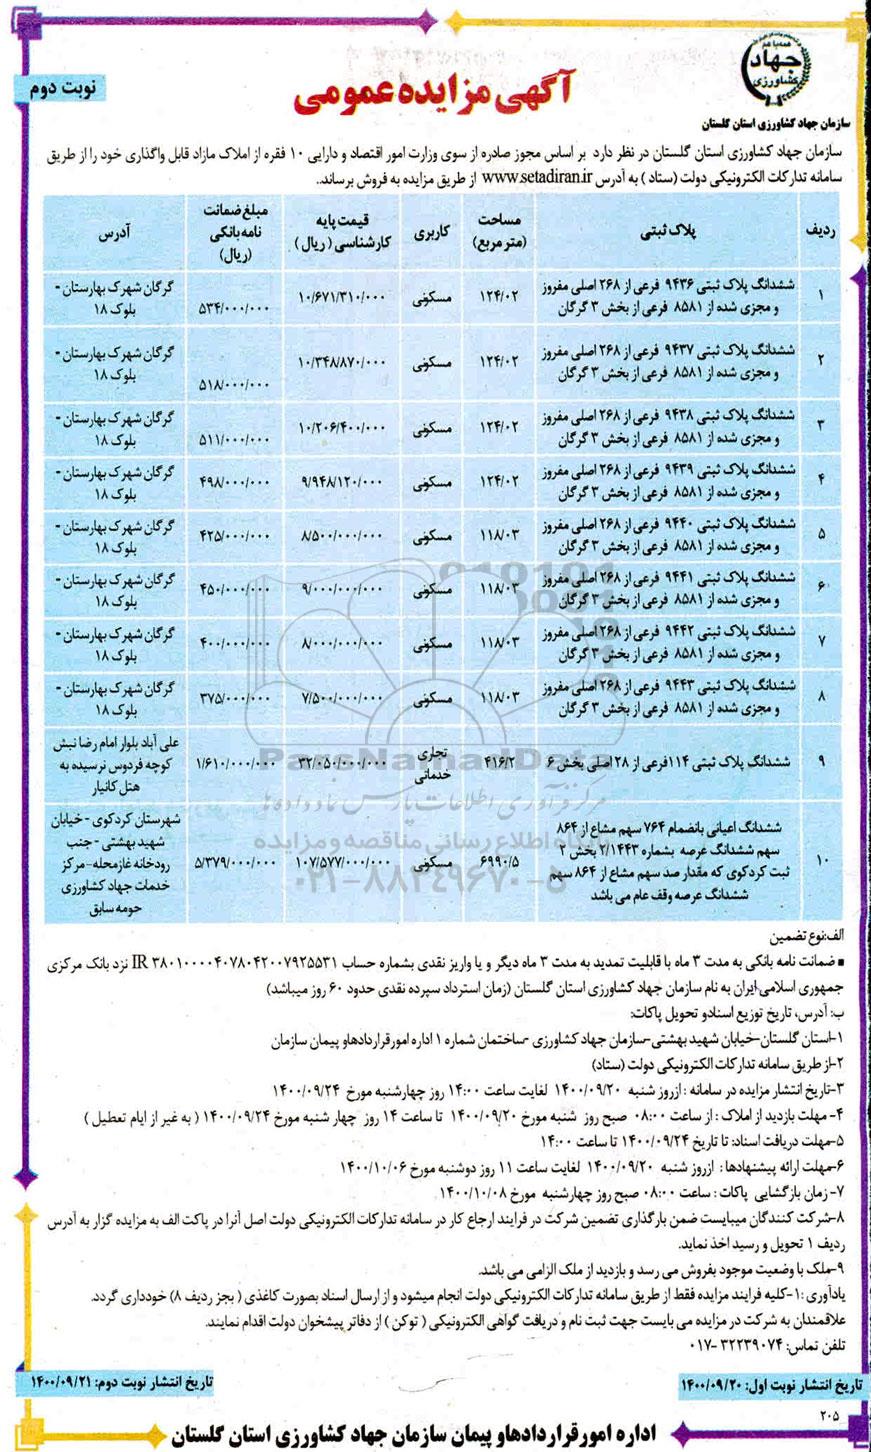 همه با هم
جهاد
کشاورزی
سازمان جهاد کشاورزی استان گلستان
آگهی مزایده عمومی
نوبت دوم
سازمان جهاد کشاورزی استان گلستان در نظر دارد بر اساس مجوز صادره از سوی وزارت امور اقتصاد و دارایی ۱۰ فقره از املاک مازاد قابل واگذاری خود را از طریق
سامانه تدارکات الکترونیکی دولت (ستاد ) به آدرس www.setadiran.ir از طریق مزایده به فروش برساند.
ردیف | پلاک ثبتی | مساحت (متر مربع) | کاربری | قیمت پایه کارشناسی ( ریال ) | مبلغ ضمانت نامه بانکی (ریال) | آدرس
۱ | ششدانگ پلاک ثبتی ۹۴۳۶ فرعی از ۲۶۸ اصلی مفروز و مجزی شده از ۸۵۸۱ فرعی از بخش ۳ گرگان | ۱۲۴/۰۲ | مسکونی | ۱۰/۶۷۱/۳۱۰/۰۰۰ | ۵۳۴/۰۰۰/۰۰۰ | گرگان شهرک بهارستان - بلوک ۱۸
۲ | ششدانگ پلاک ثبتی ۹۴۳۷ فرعی از ۲۶۸ اصلی مفروز و مجزی شده از ۸۵۸۱ فرعی از بخش ۳ گرگان | ۱۲۴/۰۲ | مسکونی | ۱۰/۳۴۸/۸۷۰/۰۰۰ | ۵۱۸/۰۰۰/۰۰۰ | گرگان شهرک بهارستان - بلوک ۱۸
۳ | ششدانگ پلاک ثبتی ۹۴۳۸ فرعی از ۲۶۸ اصلی مفروز و مجزی شده از ۸۵۸۱ فرعی از بخش ۳ گرگان | ۱۲۴/۰۲ | مسکونی | ۱۰/۲۰۶/۴۰۰/۰۰۰ | ۵۱۱/۰۰۰/۰۰۰ | گرگان شهرک بهارستان - بلوک ۱۸
۴ | ششدانگ پلاک ثبتی ۹۴۳۹ فرعی از ۲۶۸ اصلی مفروز و مجزی شده از ۸۵۸۱ فرعی از بخش ۳ گرگان | ۱۲۴/۰۲ | مسکونی | ۹/۹۴۸/۱۲۰/۰۰۰ | ۴۹۸/۰۰۰/۰۰۰ | گرگان شهرک بهارستان - بلوک ۱۸
۵ | ششدانگ پلاک ثبتی ۹۴۴۰ فرعی از ۲۶۸ اصلی مفروز و مجزی شده از ۸۵۸۱ فرعی از بخش ۳ گرگان | ۱۱۸/۰۳ | مسکونی | ۸/۵۰۰/۰۰۰/۰۰۰ | ۴۲۵/۰۰۰/۰۰۰ | گرگان شهرک بهارستان - بلوک ۱۸
۶ | ششدانگ پلاک ثبتی ۹۴۴۱ فرعی از ۲۶۸ اصلی مفروز و مجزی شده از ۸۵۸۱ فرعی از بخش ۳ گرگان | ۱۱۸/۰۳ | مسکونی | ۹/۰۰۰/۰۰۰/۰۰۰ | ۴۵۰/۰۰۰/۰۰۰ | گرگان شهرک بهارستان - بلوک ۱۸
۷ | ششدانگ پلاک ثبتی ۹۴۴۲ فرعی از ۲۶۸ اصلی مفروز و مجزی شده از ۸۵۸۱ فرعی از بخش ۳ گرگان | ۱۱۸/۰۳ | مسکونی | ۸/۰۰۰/۰۰۰/۰۰۰ | ۴۰۰/۰۰۰/۰۰۰ | گرگان شهرک بهارستان - بلوک ۱۸
۸ | ششدانگ پلاک ثبتی ۹۴۴۳ فرعی از ۲۶۸ اصلی مفروز و مجزی شده از ۸۵۸۱ فرعی از بخش ۳ گرگان | ۱۱۸/۰۳ | مسکونی | ۷/۵۰۰/۰۰۰/۰۰۰ | ۳۷۵/۰۰۰/۰۰۰ | گرگان شهرک بهارستان - بلوک ۱۸
۹ | ششدانگ پلاک ثبتی ۱۱۴فرعی از ۲۸ اصلی بخش ۶ | ۴۱۶/۲ | تجاری خدماتی | ۳۲/۰۵۰/۰۰۰/۰۰۰ | ۱/۶۱۰/۰۰۰/۰۰۰ | علی آباد بلوار امام رضا نبش کوچه فردوس نرسیده به هتل کانیار
۱۰ | ششدانگ اعیانی بانضمام ۷۶۴ سهم مشاع از ۸۶۴ سهم ششدانگ عرصه بشماره ۲/۱۴۴۳ بخش ۲ ثبت کردکوی که مقدار صد سهم مشاع از ۸۶۴ سهم ششدانگ عرصه وقف عام می باشد | ۶۹۹۰/۵ | مسکونی | ۱۰۷/۵۷۷/۰۰۰/۰۰۰ | ۵/۳۷۹/۰۰۰/۰۰۰ | شهرستان کردکوی - خیابان شهید بهشتی - جنب رودخانه غازمحله-مرکز خدمات جهاد کشاورزی حومه سابق
ParsNamadData
مرکز فرآوری اطلاعات پارس نماد داده ها
پایگاه اطلاع رسانی مناقصه و مزایده
۰۲۱-۸۸۳۴۹۶۷۰-۵
الف:نوع تضمین
■ ضمانت نامه بانکی به مدت ۳ ماه با قابلیت تمدید به مدت ۳ ماه دیگر و یا واریز نقدی بشماره حساب IR ۳۸۰۱۰۰۰۰۴۰۷۸۰۴۲۰۰۷۹۲۵۵۳۱ نزد بانک مرکزی
جمهوری اسلامی ایران به نام سازمان جهاد کشاورزی استان گلستان (زمان استرداد سپرده نقدی حدود ۶۰ روز میباشد)
ب: آدرس، تاریخ توزیع اسناد و تحویل پاکات:
۱-استان گلستان-خیابان شهید بهشتی-سازمان جهاد کشاورزی -ساختمان شماره ۱ اداره امور قراردادها و پیمان سازمان
۲-از طریق سامانه تدارکات الکترونیکی دولت (ستاد)
۳-تاریخ انتشار مزایده در سامانه : از روز شنبه ۱۴۰۰/۰۹/۲۰ لغایت ساعت ۱۴:۰۰ روز چهارشنبه مورخ ۱۴۰۰/۰۹/۲۴
۴- مهلت بازدید از املاک : از ساعت ۰۸:۰۰ صبح روز شنبه مورخ ۱۴۰۰/۰۹/۲۰ تا ساعت ۱۴ روز چهار شنبه مورخ ۱۴۰۰/۰۹/۲۴ ( به غیر از ایام تعطیل )
۵-مهلت دریافت اسناد: تا تاریخ ۱۴۰۰/۰۹/۲۴ تا ساعت ۱۴:۰۰
۶-مهلت ارائه پیشنهادها : از روز شنبه ۱۴۰۰/۰۹/۲۰ لغایت ساعت ۱۱ روز دوشنبه مورخ ۱۴۰۰/۱۰/۰۶
۷- زمان بازگشایی پاکات : ساعت ۰۸:۰۰ صبح روز چهارشنبه مورخ ۱۴۰۰/۱۰/۰۸
۸-شرکت کنندگان میبایست ضمن بارگذاری تضمین شرکت در فرایند ارجاع کار در سامانه تدارکات الکترونیکی دولت اصل آنرا در پاکت الف به مزایده گزار به آدرس
ردیف ۱ تحویل و رسید اخذ نماید.
۹-ملک با وضعیت موجود بفروش می رسد و بازدید از ملک الزامی می باشد.
یادآوری :۱-کلیه فرایند مزایده فقط از طریق سامانه تدارکات الکترونیکی دولت انجام میشود و از ارسال اسناد بصورت کاغذی ( بجز ردیف ۸) خودداری گردد.
علاقمندان به شرکت در مزایده می بایست جهت ثبت نام و دریافت گواهی الکترونیکی ( توکن ) از دفاتر پیشخوان دولت اقدام نمایند.
تلفن تماس: ۳۲۲۳۹۰۷۴ -۰۱۷
تاریخ انتشار نوبت اول: ۱۴۰۰/۰۹/۲۰
تاریخ انتشار نوبت دوم: ۱۴۰۰/۰۹/۲۱
۲۰۵
اداره امور قراردادها و پیمان سازمان جهاد کشاورزی استان گلستان